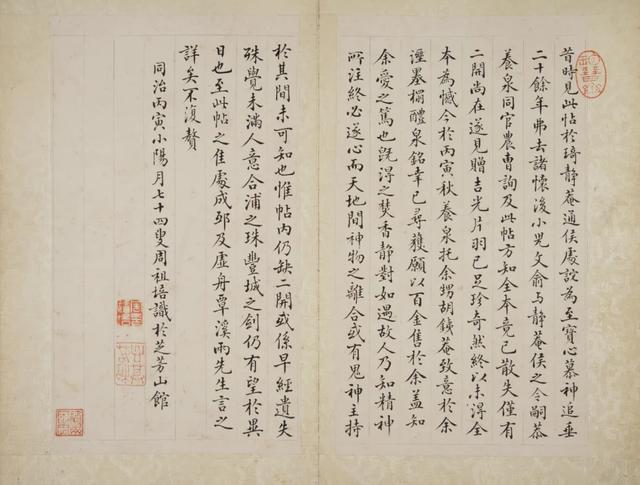 昔時見此帖於琦靜菴通侯處詫為至寶心慕神追垂
二十餘年弗去諸懷後小兒文俞与靜菴侯之令嗣恭
養泉同官農曹詢及此帖方知全本竟已散失僅有
二開尚在遂見贈吉光片羽已足珍奇然終以未得全
本為憾今於丙寅秋養泉托余甥胡銕菴致意於余
溼墨搨醴泉銘幸已尋獲願以百金售於余蓋知
余愛之篤也既得之焚香靜對如遇故人乃知精神
所注終必遂心而天地間神物之離合或有鬼神主持
於其間未可知也惟帖內仍缺二開或係早經遺失
珠覺未滿人意合浦之珠豐城之劍仍有望於異
日也至此帖之佳處成邸及虛舟覃溪兩先生言之
詳矣不復贅
同治丙寅小陽月七十四叟周祖培識於芝芳山館